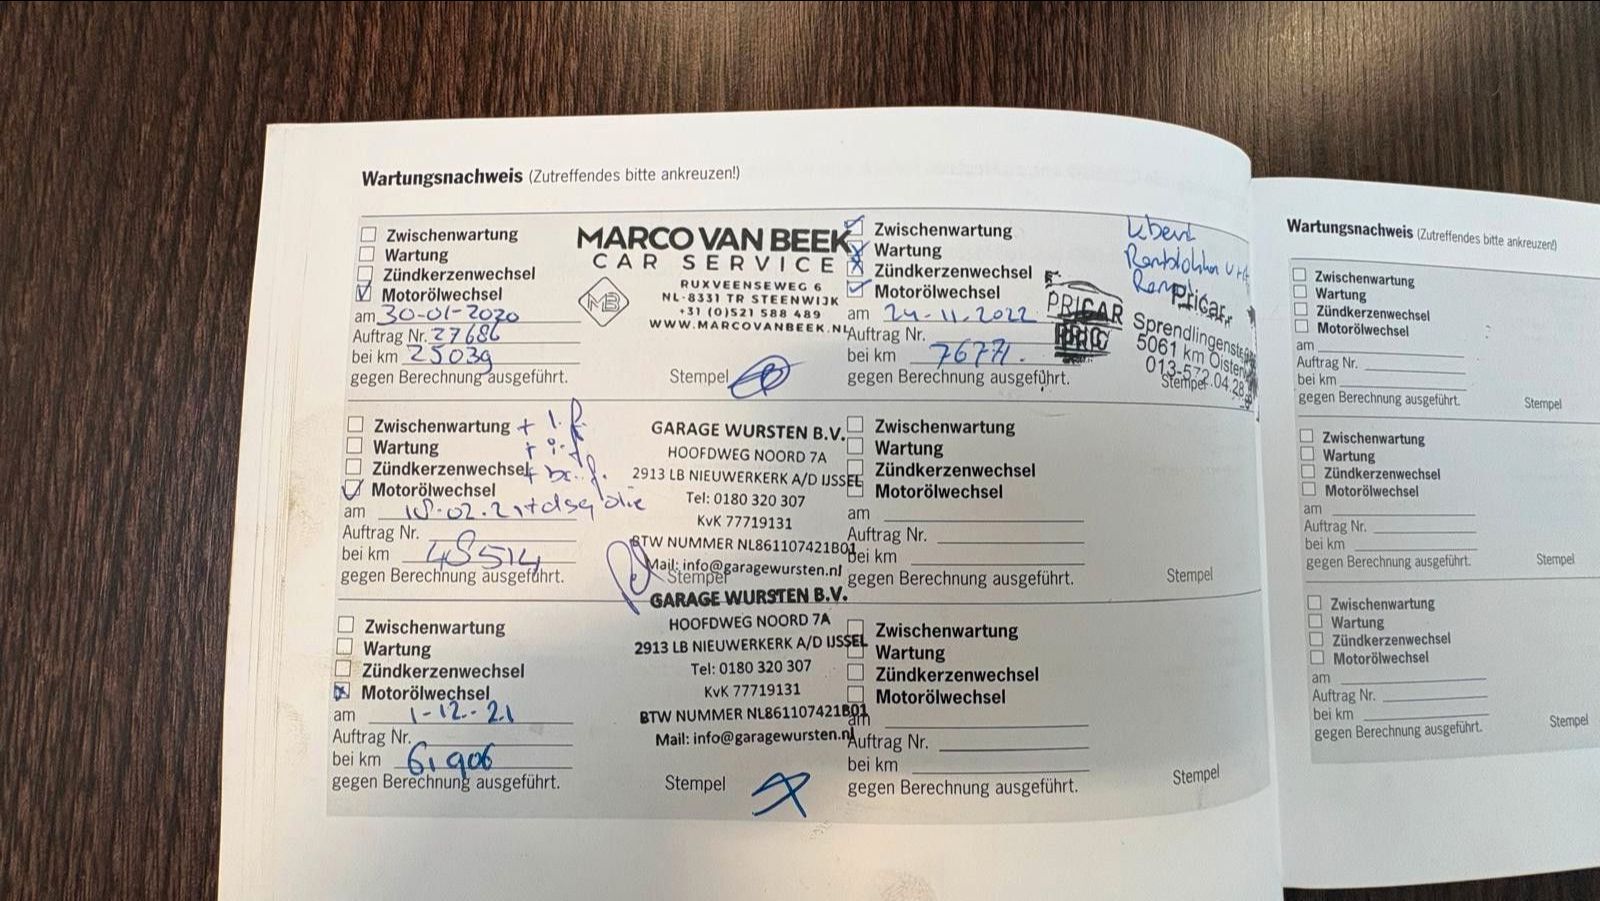 Wartungsnachweis (Zutreffendes bitte ankreuzen!)
Zwischenwartung
Wartung
Zündkerzenwechsel
Motorölwechsel
am 30-01-2020
Auftrag Nr. 27686
bei km 25039
gegen Berechnung ausgeführt.
MARCO VAN BEEK
CAR SERVICE
MB
RUXVEENSEWEG 6
NL-8331 TR STEENWIJK
+31 (0)521 588 489
WWW.MARCOVANBEEK.NL
Stempel
Zwischenwartung + l.f
Wartung + i.f
Zündkerzenwechsel +
Motorölwechsel
am 18-02-21 + dsg olie
Auftrag Nr.
bei km 48514
gegen Berechnung ausgeführt.
GARAGE WURSTEN B.V.
HOOFDWEG NOORD 7A
2913 LB NIEUWERKERK A/D IJSSEL
Tel: 0180 320 307
KvK 77719131
BTW NUMMER NL861107421B01
Mail: info@garagewursten.nl
Stempel
Zwischenwartung
Wartung
Zündkerzenwechsel
Motorölwechsel
am 1-12-21
Auftrag Nr.
bei km 61906
gegen Berechnung ausgeführt.
GARAGE WURSTEN B.V.
HOOFDWEG NOORD 7A
2913 LB NIEUWERKERK A/D IJSSEL
Tel: 0180 320 307
KvK 77719131
BTW NUMMER NL861107421B01
Mail: info@garagewursten.nl
Stempel
Zwischenwartung
Wartung
Zündkerzenwechsel
Motorölwechsel
am 24-11-2022
Auftrag Nr.
bei km 76771.
gegen Berechnung ausgeführt.
PRICAR
Pricar
Sprendlingenstr
5061 km Oisterw
013-572.04.28
Stempel
Zwischenwartung
Wartung
Zündkerzenwechsel
Motorölwechsel
am
Auftrag Nr.
bei km
gegen Berechnung ausgeführt.
Stempel
Zwischenwartung
Wartung
Zündkerzenwechsel
Motorölwechsel
am
Auftrag Nr.
bei km
gegen Berechnung ausgeführt.
Stempel
Wartungsnachweis (Zutreffendes bitte ankreuzen!)
Zwischenwartung
Wartung
Zündkerzenwechsel
Motorölwechsel
am
Auftrag Nr.
bei km
gegen Berechnung ausgeführt.
Stempel
Zwischenwartung
Wartung
Zündkerzenwechsel
Motorölwechsel
am
Auftrag Nr.
bei km
gegen Berechnung ausgeführt.
Stempel
Zwischenwartung
Wartung
Zündkerzenwechsel
Motorölwechsel
am
Auftrag Nr.
bei km
gegen Berechnung ausgeführt.
Stempel